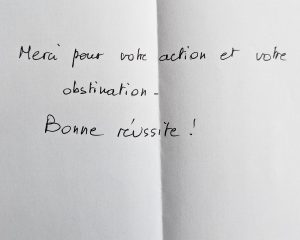 Merci pour votre action et votre
obstination -
Bonne réussite !